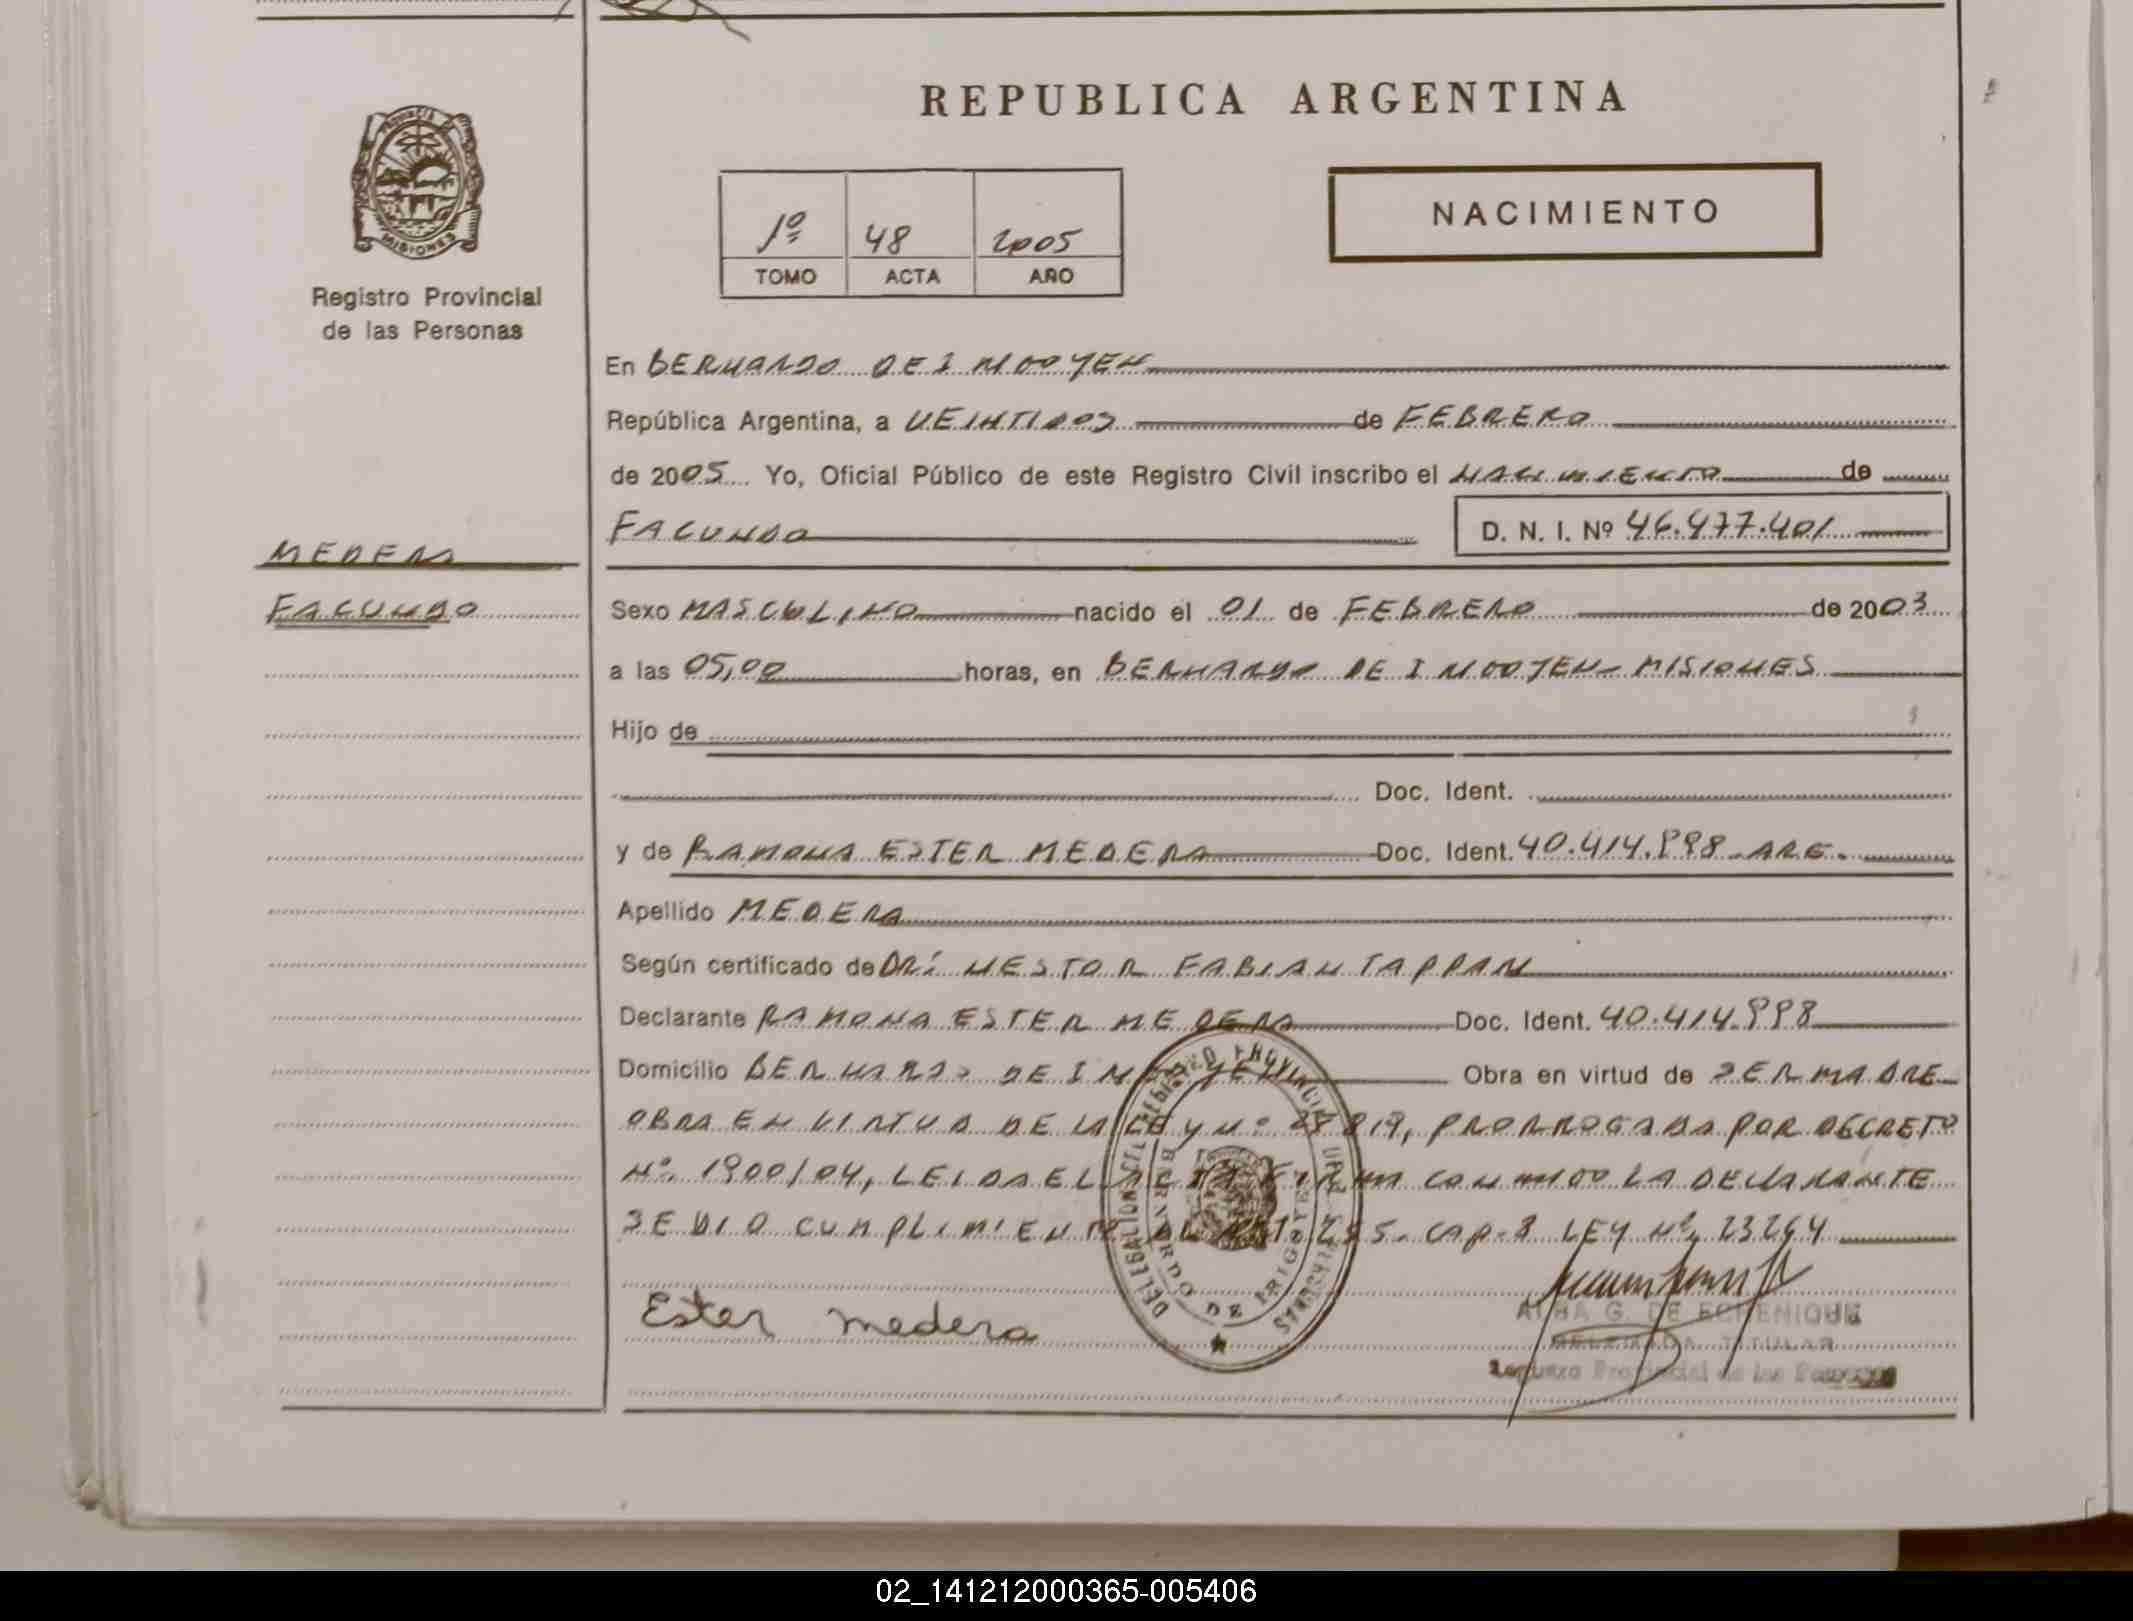 REPUBLICA ARGENTINA
PROVINCIA
MISIONES
Registro Provincial
de las Personas
1º 48 2005
TOMO ACTA AÑO
NACIMIENTO
En BERNARDO DE IRIGOYEN
República Argentina, a VEINTIDOS de FEBRERO
de 2005 Yo, Oficial Público de este Registro Civil inscribo el NACIMIENTO de
FACUNDO D. N. I. Nº 46.477.401
MEDERA
FACUNDO
Sexo MASCULINO nacido el 01 de FEBRERO de 2003
a las 05,00 horas, en BERNARDO DE IRIGOYEN - MISIONES
Hijo de
Doc. Ident.
y de RAMONA ESTER MEDERA Doc. Ident. 40.414.998 - ARG.
Apellido MEDERA
Según certificado de DR: NESTOR FABIAN TAPPARI
Declarante RAMONA ESTER MEDERA Doc. Ident. 40.414.998
Domicilio BERNARDO DE IRIGOYEN Obra en virtud de SER MADRE
OBRA EN VIRTUD DE LA LEY Nº 25819, PRORROGADA POR DECRETO
Nº 1900/04, LEIDA EL ACTA FIRMA CONMIGO LA DECLARANTE
SE DIO CUMPLIMIENTO AL ART. 255 - CAP. 8 LEY Nº 23264
Ester medera
DELEGACION DEL REGISTRO PROVINCIAL DE LAS PERSONAS
BERNARDO DE IRIGOYEN
ALBA G. DE ECHENIQUE
DELEGADA TITULAR
Registro Provincial de las Personas
02_141212000365-005406